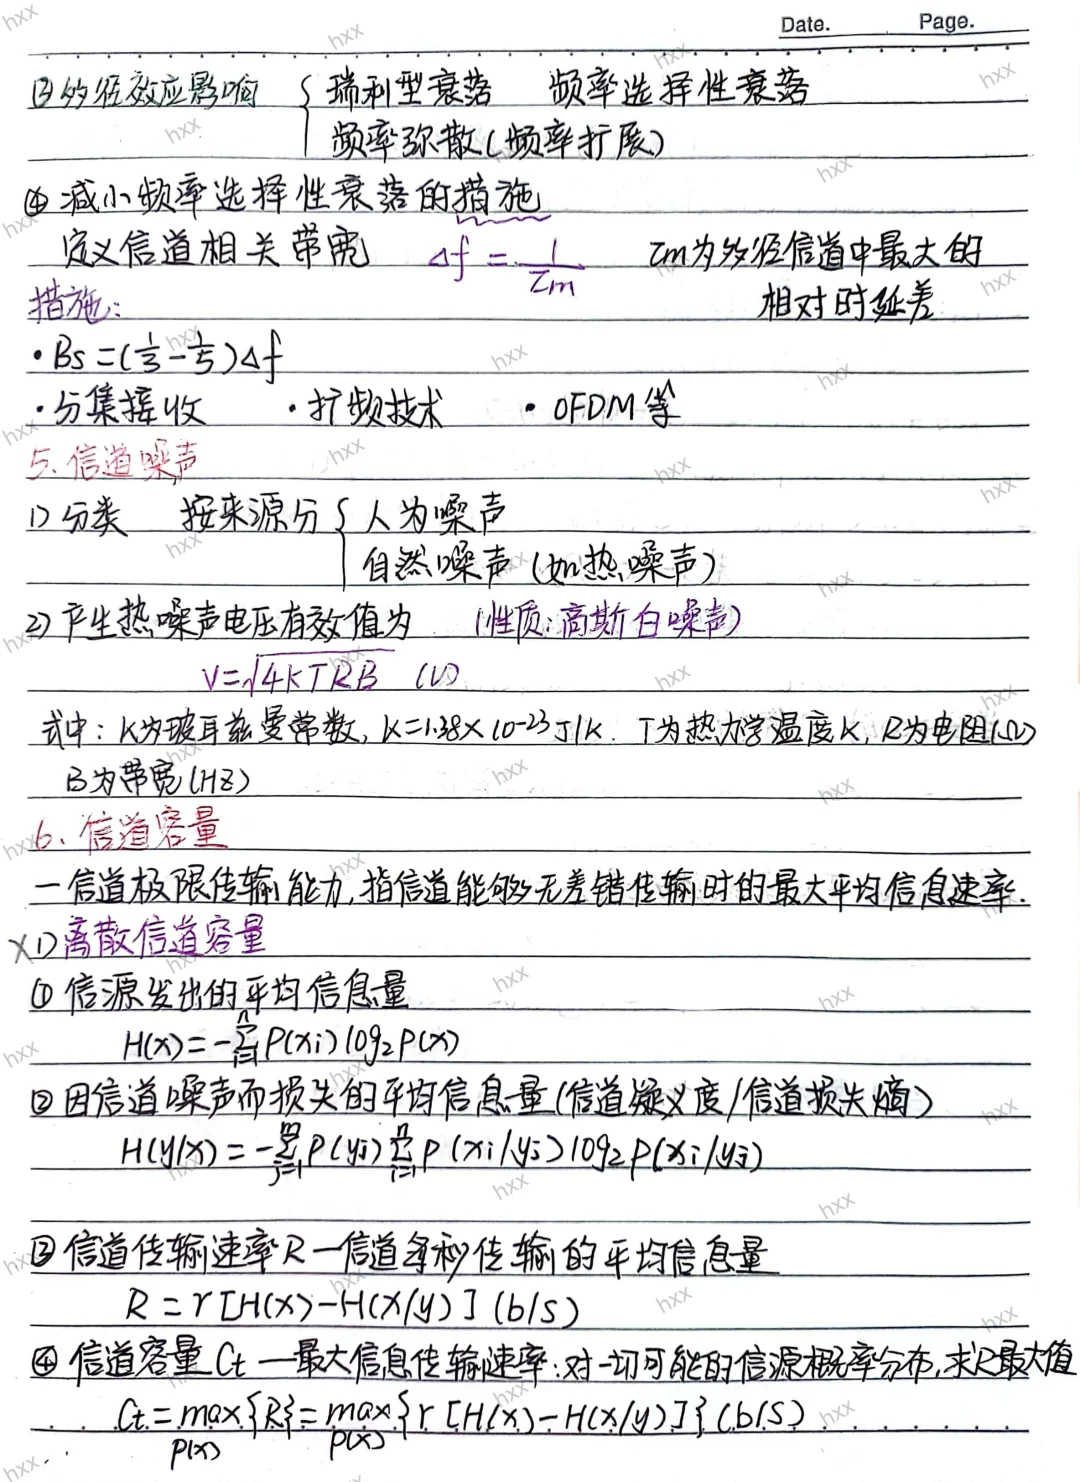 Date. Page.
③多径效应影响 { 瑞利型衰落 频率选择性衰落
频率弥散(频率扩展)
④减小频率选择性衰落的措施
定义信道相关带宽 Δf = 1/τm τm为多径信道中最大的
相对时延差
措施:
·Bs=(1/3-1/5)Δf
·分集接收 ·扩频技术 ·OFDM等
5、信道噪声
1)分类 按来源分 { 人为噪声
自然噪声(如热噪声)
2)产生热噪声电压有效值为 (性质:高斯白噪声)
V=√4KTRB (V)
式中:K为玻耳兹曼常数,K=1.38×10-23J/K. T为热力学温度K,R为电阻(Ω)
B为带宽(HZ)
6、信道容量
—信道极限传输能力,指信道能够无差错传输时的最大平均信息速率.
×1)离散信道容量
①信源发出的平均信息量
H(x)=-∑(i=1,n)P(xi)log2P(x)
②因信道噪声而损失的平均信息量(信道疑义度/信道损失熵)
H(y/x)=-∑(j=1,m)P(yj)∑(i=1,n)P(xi/yj)log2P(xi/yj)
③信道传输速率R—信道每秒传输的平均信息量
R=r[H(x)-H(x/y)](b/s)
④信道容量Ct—最大信息传输速率:对一切可能的信源概率分布,求R最大值
Ct=max{R}=max{r[H(x)-H(x/y)]}(b/s)
P(x) P(x)
hxx